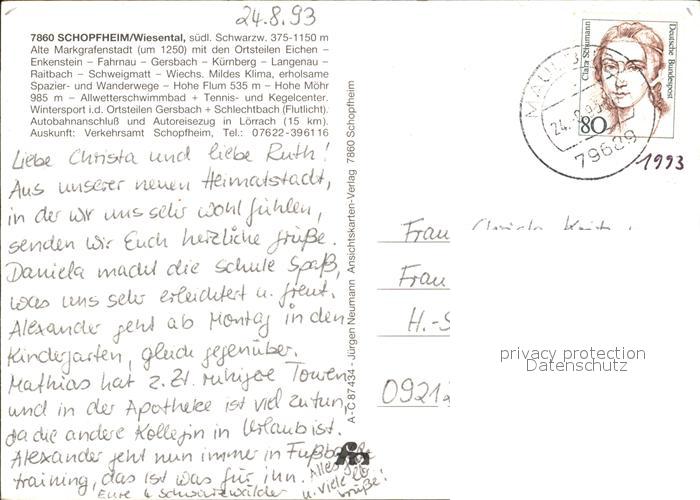 24.8.93
7860 SCHOPFHEIM/Wiesental, südl. Schwarzw. 375-1150 m
Alte Markgrafenstadt (um 1250) mit den Ortsteilen Eichen –
Enkenstein – Fahrnau – Gersbach – Kürnberg – Langenau –
Raitbach – Schweigmatt – Wiechs. Mildes Klima, erholsame
Spazier- und Wanderwege – Hohe Flum 535 m – Hohe Möhr
985 m – Allwetterschwimmbad + Tennis- und Kegelcenter.
Wintersport i.d. Ortsteilen Gersbach + Schlechtbach (Flutlicht).
Autobahnanschluß und Autoreisezug in Lörrach (15 km).
Auskunft: Verkehrsamt Schopfheim, Tel.: 07622-396116
Liebe Christa und liebe Ruth!
Aus unserer neuen Heimatstadt,
in der wir uns sehr wohl fühlen,
senden wir Euch herzliche Grüße.
Daniela macht die Schule Spaß,
was uns sehr erleichtert u. freut.
Alexander geht ab Montag in den
Kindergarten, gleich gegenüber.
Mathias hat z. Zt. ruhigere Touren
und in der Apotheke ist viel zu tun,
da die andere Kollegin in Urlaub ist.
Alexander geht nun immer in Fußball
training, das ist was für ihn. Alles
u. viele Grüße!
Eure 4 Schwarzwälder
A-C 87 434 - Jürgen Neumann Ansichtskarten-Verlag 7860 Schopfheim
Clara Schumann
Deutsche Bundespost
80
79689
1993
Frau
Frau
H.-S
0921
privacy protection
Datenschutz